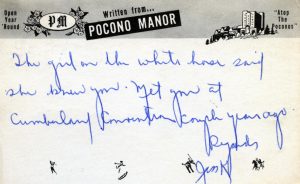 Open
Year
'Round
PM
Written from...
POCONO MANOR
"Atop
The
Poconos"
The girl on the white horse said
she knew you. Met you at
Cumberland Convention couple years ago
Regards
Jess K